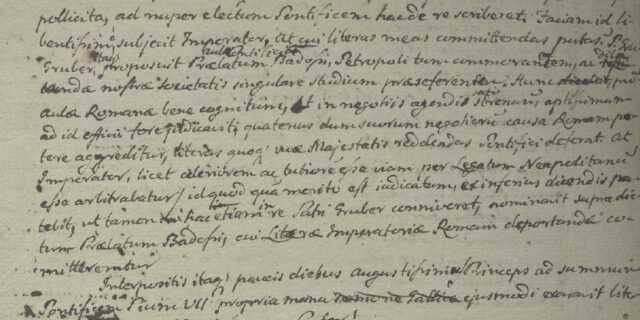 pollicita, ad nuper electum Pontificem hac de re scriberet, Faciam id li
bentissime, subjecit Imperator, at cui literas meas committendas putas? P.
Gruber, itaq; proposuit Prælatum Badossi, Petropoli tum commorantem, ac
nostræ Societatis singulare studium præseferentem, Hunc pro
aulæ Romanæ bene cognitum, et in negotiis agendis strenuum, aptissimum
ad id effici fore judicavit, quatenus dum suorum negotiorum causa Romam pe
tere aggreditur, literas quoq; suæ Majestatis reddendas Pontifici deferat. At
Imperator, licet celeriorem ac tutiorem esse viam per Legatum Neapolitanū
esse arbitrabatur, id quod quam merito est judicatum, ex inferius dicendis pa-
tebit, ut tamen hac etiam in re Patri Gruber conniveret, nominavit supra dic
tum Prælatum Badossi, cui Literæ Imperatoriæ Romam deportandæ co-
mitterentur.
Interpositis itaq; paucis diebus augustissimus Princeps ad summum
Pontificem Pium VII propria manu ejusmodi exaravit liter